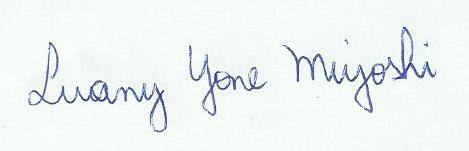 Luany Yone Miyoshi